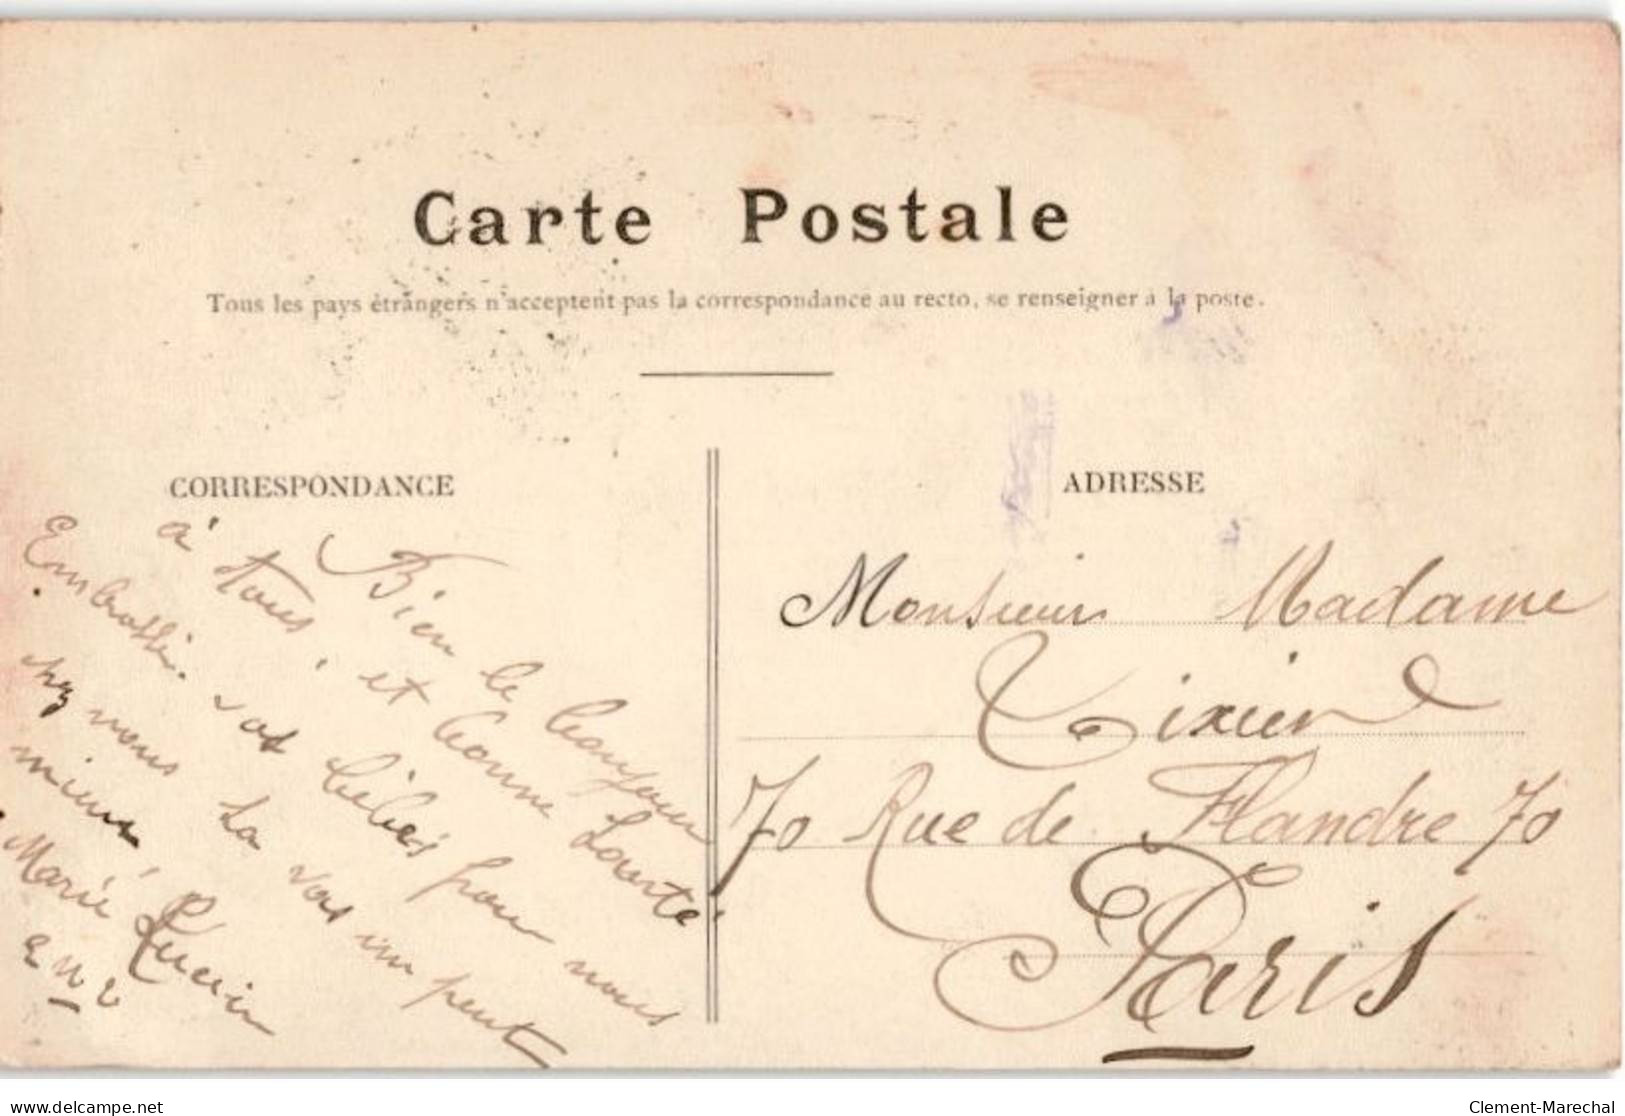 Carte Postale
Tous les pays étrangers n'acceptent pas la correspondance au recto, se renseigner à la poste.
CORRESPONDANCE
Bien le bonjour
à tous, et bonne Santé
Embrassé vos bébés pour nous
chez nous sa vas un peut
mieux,
Marie Lucien
ADRESSE
Monsieur Madame
Tixier
70 Rue de Flandre 70
Paris
delcampe.net
Clement-Marechal